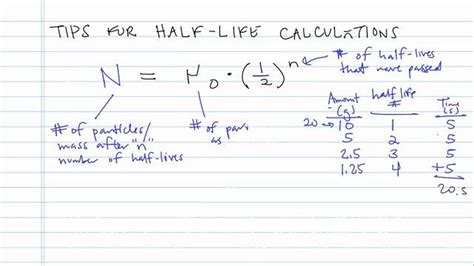 TIPS FOR HALF-LIFE CALCULATIONS
N = N₀ · (1/2)ⁿ
# of half-lives
that have passed
# of particles/
mass after "n"
number of half-lives
# of par
as
Amount (g) half life # Time (s)
20 → 10 1 5
5 2 5
2.5 3 5
1.25 4 +5
20.s